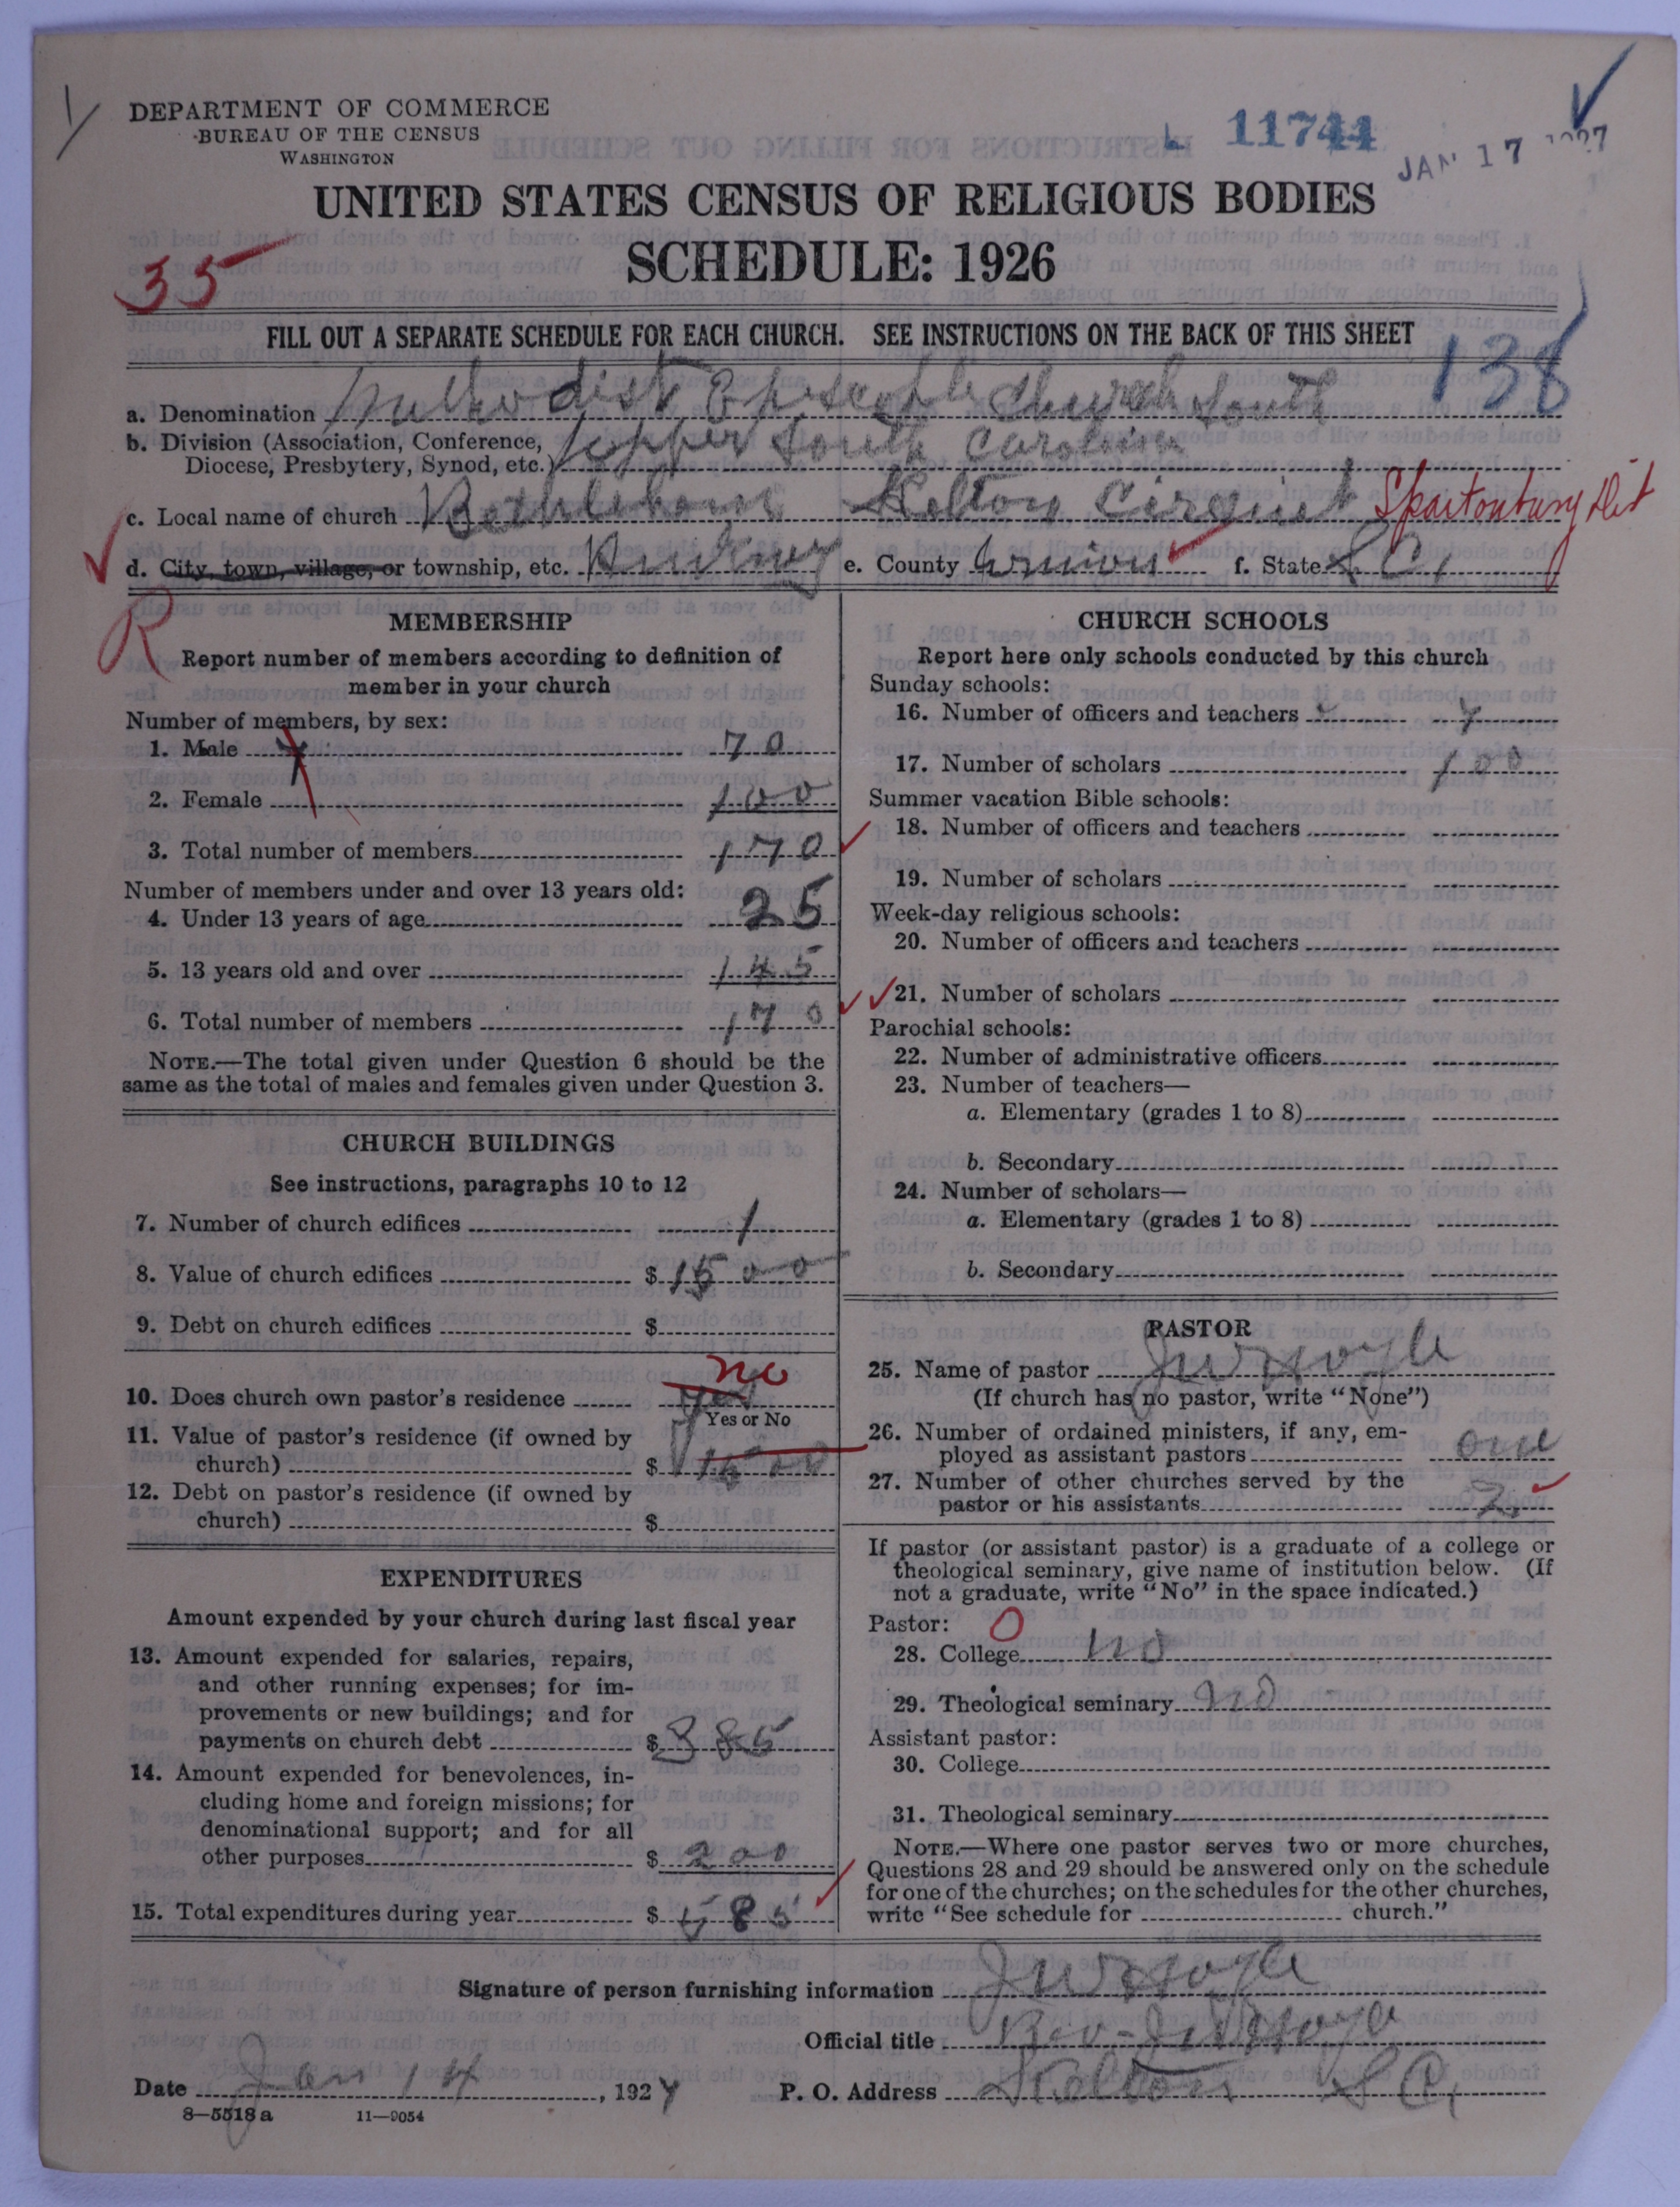 DEPARTMENT OF COMMERCE
BUREAU OF THE CENSUS
WASHINGTON
L 11744
JAN 17 1927
UNITED STATES CENSUS OF RELIGIOUS BODIES
SCHEDULE: 1926
35
FILL OUT A SEPARATE SCHEDULE FOR EACH CHURCH. SEE INSTRUCTIONS ON THE BACK OF THIS SHEET
138
a. Denomination Methodist Episcople Church South
b. Division (Association, Conference, Diocese, Presbytery, Synod, etc.) Upper South Carolina
c. Local name of church Bethlehem Kelton Circuit Spartonburg Dist
d. City, town, village, or township, etc. Pinkney e. County Union f. State S C,
R
MEMBERSHIP
Report number of members according to definition of
member in your church
Number of members, by sex:
1. Male 70
2. Female 100
3. Total number of members 170
Number of members under and over 13 years old:
4. Under 13 years of age 25
5. 13 years old and over 145
6. Total number of members 170
NOTE.—The total given under Question 6 should be the
same as the total of males and females given under Question 3.
CHURCH BUILDINGS
See instructions, paragraphs 10 to 12
7. Number of church edifices 1
8. Value of church edifices $ 1500
9. Debt on church edifices $
no
10. Does church own pastor's residence yes
Yes or No
11. Value of pastor's residence (if owned by
church) $ 1500
12. Debt on pastor's residence (if owned by
church) $
EXPENDITURES
Amount expended by your church during last fiscal year
13. Amount expended for salaries, repairs,
and other running expenses; for im-
provements or new buildings; and for
payments on church debt $ 385
14. Amount expended for benevolences, in-
cluding home and foreign missions; for
denominational support; and for all
other purposes $ 200
15. Total expenditures during year $ 585
CHURCH SCHOOLS
Report here only schools conducted by this church
Sunday schools:
16. Number of officers and teachers 7
17. Number of scholars 100
Summer vacation Bible schools:
18. Number of officers and teachers
19. Number of scholars
Week-day religious schools:
20. Number of officers and teachers
21. Number of scholars
Parochial schools:
22. Number of administrative officers
23. Number of teachers—
a. Elementary (grades 1 to 8)
b. Secondary
24. Number of scholars—
a. Elementary (grades 1 to 8)
b. Secondary
PASTOR
25. Name of pastor J W Hoyle
(If church has no pastor, write "None")
26. Number of ordained ministers, if any, em-
ployed as assistant pastors one
27. Number of other churches served by the
pastor or his assistants 2
If pastor (or assistant pastor) is a graduate of a college or
theological seminary, give name of institution below. (If
not a graduate, write "No" in the space indicated.)
Pastor: O
28. College no
29. Theological seminary no
Assistant pastor:
30. College
31. Theological seminary
NOTE.—Where one pastor serves two or more churches,
Questions 28 and 29 should be answered only on the schedule
for one of the churches; on the schedules for the other churches,
write "See schedule for church."
Signature of person furnishing information J W Hoyle
Official title Rev-J W Hoyle
Date Jan 14, 1927 P. O. Address Kelton S C,
8—5518 a 11—9054